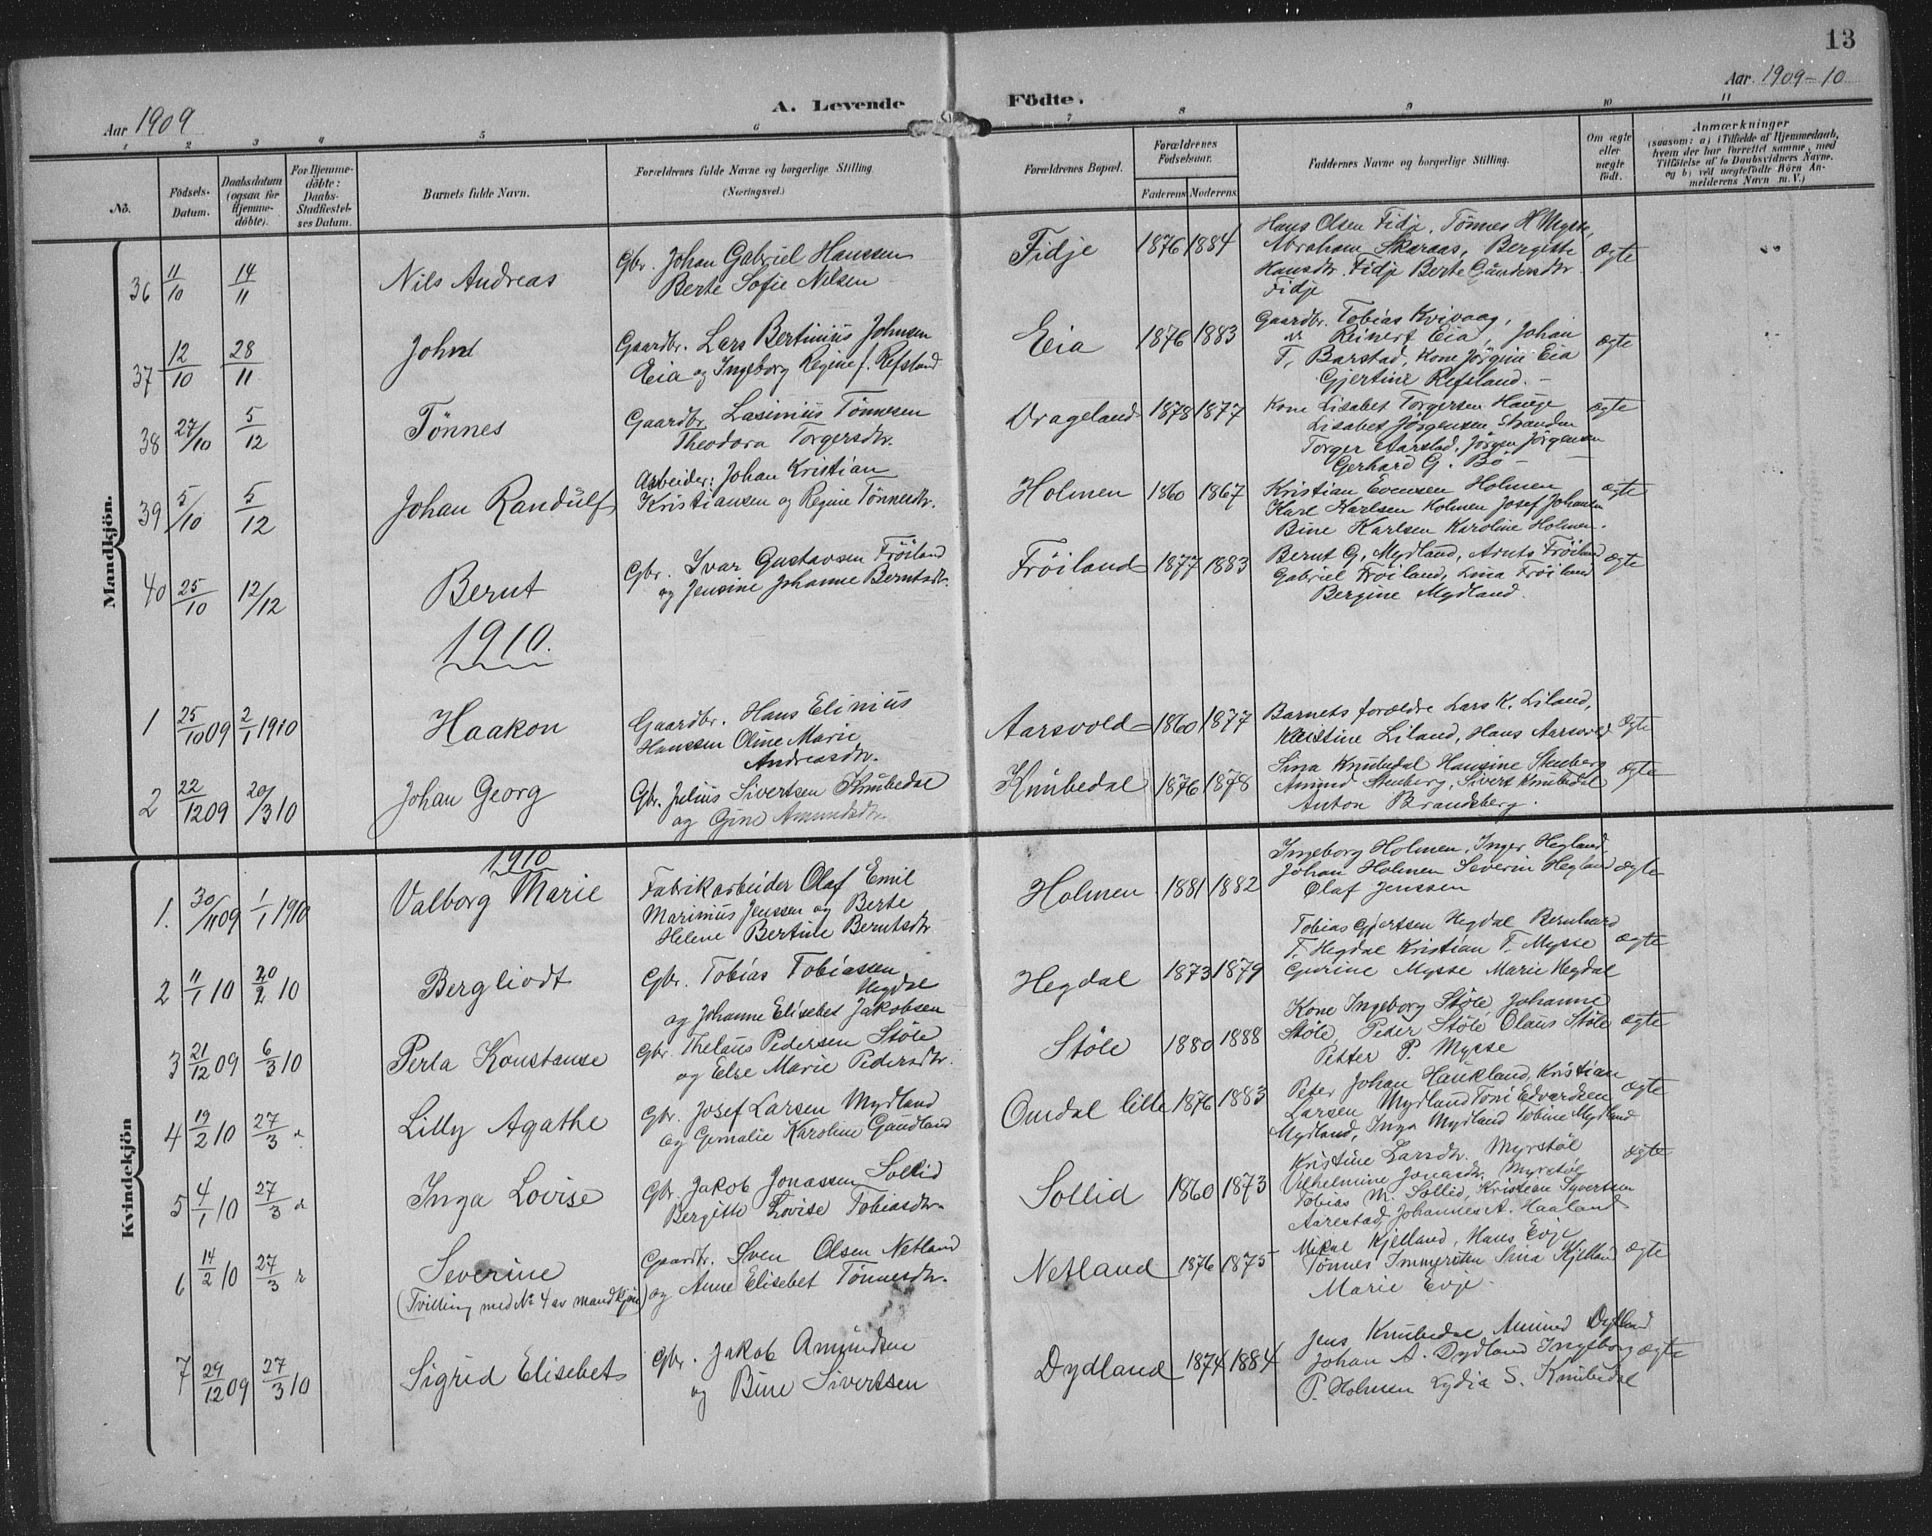 13
Aar 1909
A. Levende Födte.
Aar 1909-10
1 2 3 4 5 6 7 8 9 10 11
No.
Födsels-Datum.
Daabsdatum (ogsaa for Hjemme-döbte).
For Hjemme-döbte: Daabs-Stadfæstel-ses Datum.
Barnets fulde Navn.
Forældrenes fulde Navne og borgerlige Stilling (Næringsvei.)
Forældrenes Bopæl.
Forældrenes Födselsaar.
Faderens Moderens
Faddernes Navne og borgerlige Stilling.
Om ægte eller uægte födt.
Anmærkninger
(saasom: a) i Tilfælde af Hjemmedaab, hvem der har forrettet samme, med Tilföielse af to Daabsvidners Navne, og b) ved uægtefödte Börn Anmelderens Navn m. V.)
Mandkjön.
36 11/10 14/11 Nils Andreas
Gbr. Johan Gabriel Hanssen
Berte Sofie Nilsen
Fidje 1876 1884
Hans Olsen Fidje, Tönnes H Mysse,
Abraham Skaraas, Bergitte
Hansdtr. Fidje Berte Gundersdtr
Fidje
ægte
37 12/10 28/11 John
Gaardbr. Lars Bertinius Johnsen
Eia og Ingeborg Regine f. Refsland
Eia 1876 1883
Gaardbr. Tobias Kvivaag,
Reinert Eia, Johan
T. Barstad, Kone Jörgine Eia
Gjertine Refsland. –
ægte
38 27/10 5/12 Tönnes
Gaardbr. Lasinius Tönnesen
Theodora Torgersdtr.
Drageland 1878 1877
Kone Lisabet Torgersen Hauge
Lisabet Jörgensen Stranden
Torger Aarstad, Jörgen Jörgensen
Gerhard G. Bö –
ægte
39 5/10 5/12 Johan Randulf
Arbeider: Johan Kristian
Kristiansen og Regine Tönnesdtr.
Holmen 1860 1867
Kristian Evensen Holmen
Karl Karlsen Holmen Josef Johansen
Bine Karlsen Karoline Holmen.
ægte
40 25/10 12/12 Bernt
Gbr. Ivar Gustavsen Fröiland
og Jensine Johanne Berntsdtr.
Fröiland 1877 1883
Bernt G. Mydland, Arnts Fröiland
Gabriel Fröiland, Lina Fröiland
Bergine Mydland.
ægte
1910.
1 25/10 09 2/1 1910 Haakon
Gaardbr. Hans Elinius
Hanssen Oline Marie
Andreasdtr.
Aarsvold 1860 1877
Barnets forældre Lars K. Liland,
Kristine Liland, Hans Aarsvold
ægte
2 22/12 09 20/3 10 Johan Georg
Gbr. Julius Sivertsen Knubedal
og Gine Amundsdtr.
Knubedal 1876 1878
Sina Knubedal Hansine Stenberg
Amund Stenberg, Sivert Knubedal
Anton Brandsberg.
ægte
Kvindekjön
1910
1. 30/11 09 1/1 1910 Valborg Marie
Fabrikarbeider Olaf Emil
Marinius Jenssen og Berte
Helene Bertine Berntsdtr
Holmen 1881 1882
Ingeborg Holmen, Inger Hegland
Johan Holmen Severin Hegland
Olaf Jenssen
ægte
2 11/1 10 20/2 10 Bergliodt
Gbr. Tobias Tobiassen
Hegdal
og Johanne Elisebet Jakobsen
Hegdal 1873 1879
Tobias Gjertsen Hegdal Bernhard
T. Hegdal Kristian T. Mysse
Gurine Mysse Marie Hegdal
ægte
3 21/12 09 6/3 10 Perla Konstanse
Gbr. Thelaus Pedersen Stöle
og Else Marie Pedersdtr.
Stöle 1880 1888
Kone Ingeborg Stöle Johanne
Stöle, Peder Stöle Olaus Stöle
Petter P. Mysse
ægte
4 19/2 10 27/3 " Lilly Agathe
Gbr. Josef Larsen Mydland
og Gemalie Karoline Gandland
Omdal lille 1876 1883
Peter Johan Haukland, Kristian
Larsen Mydland Toni Edvardsen
Mydland, Inga Mydland Tobine Mydland
ægte
5 4/1 10 27/3 " Inga Lovise
Gbr. Jakob Jonassen Sollid
Bergitte Lovise Tobiasdtr.
Sollid 1860 1873
Kristine Larsdtr. Myrstöl
Vilhelmine Jonasdtr. Myrstöl
Tobias M. Sollid, Kristian Syvertsen
Aarestad, Johannes A. Haaland
ægte
6 14/2 10 27/3 " Severine
(Tvilling med No 4 av mandkjön)
Gaardbr. Sven Olsen Netland
og Anne Elisebet Tönnesdtr.
Netland 1876 1875
Mikal Kjelland, Hans Evje
Tönnes Immersten Sina Kjelland
Marie Evje.
ægte
7 29/12 09 27/3 10 Sigrid Elisebet
Gbr. Jakob Amundsen
og Bine Sivertsen
Dydland 1874 1884
Jens Knubedal Amund Dydland
Johan A. Dydland Ingeborg
P. Holmen Lydia S. Knubedal
ægte